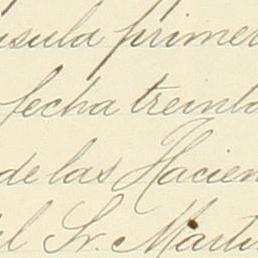 usula primer
fecha treinta
de las Hacien
el Sr. Martin